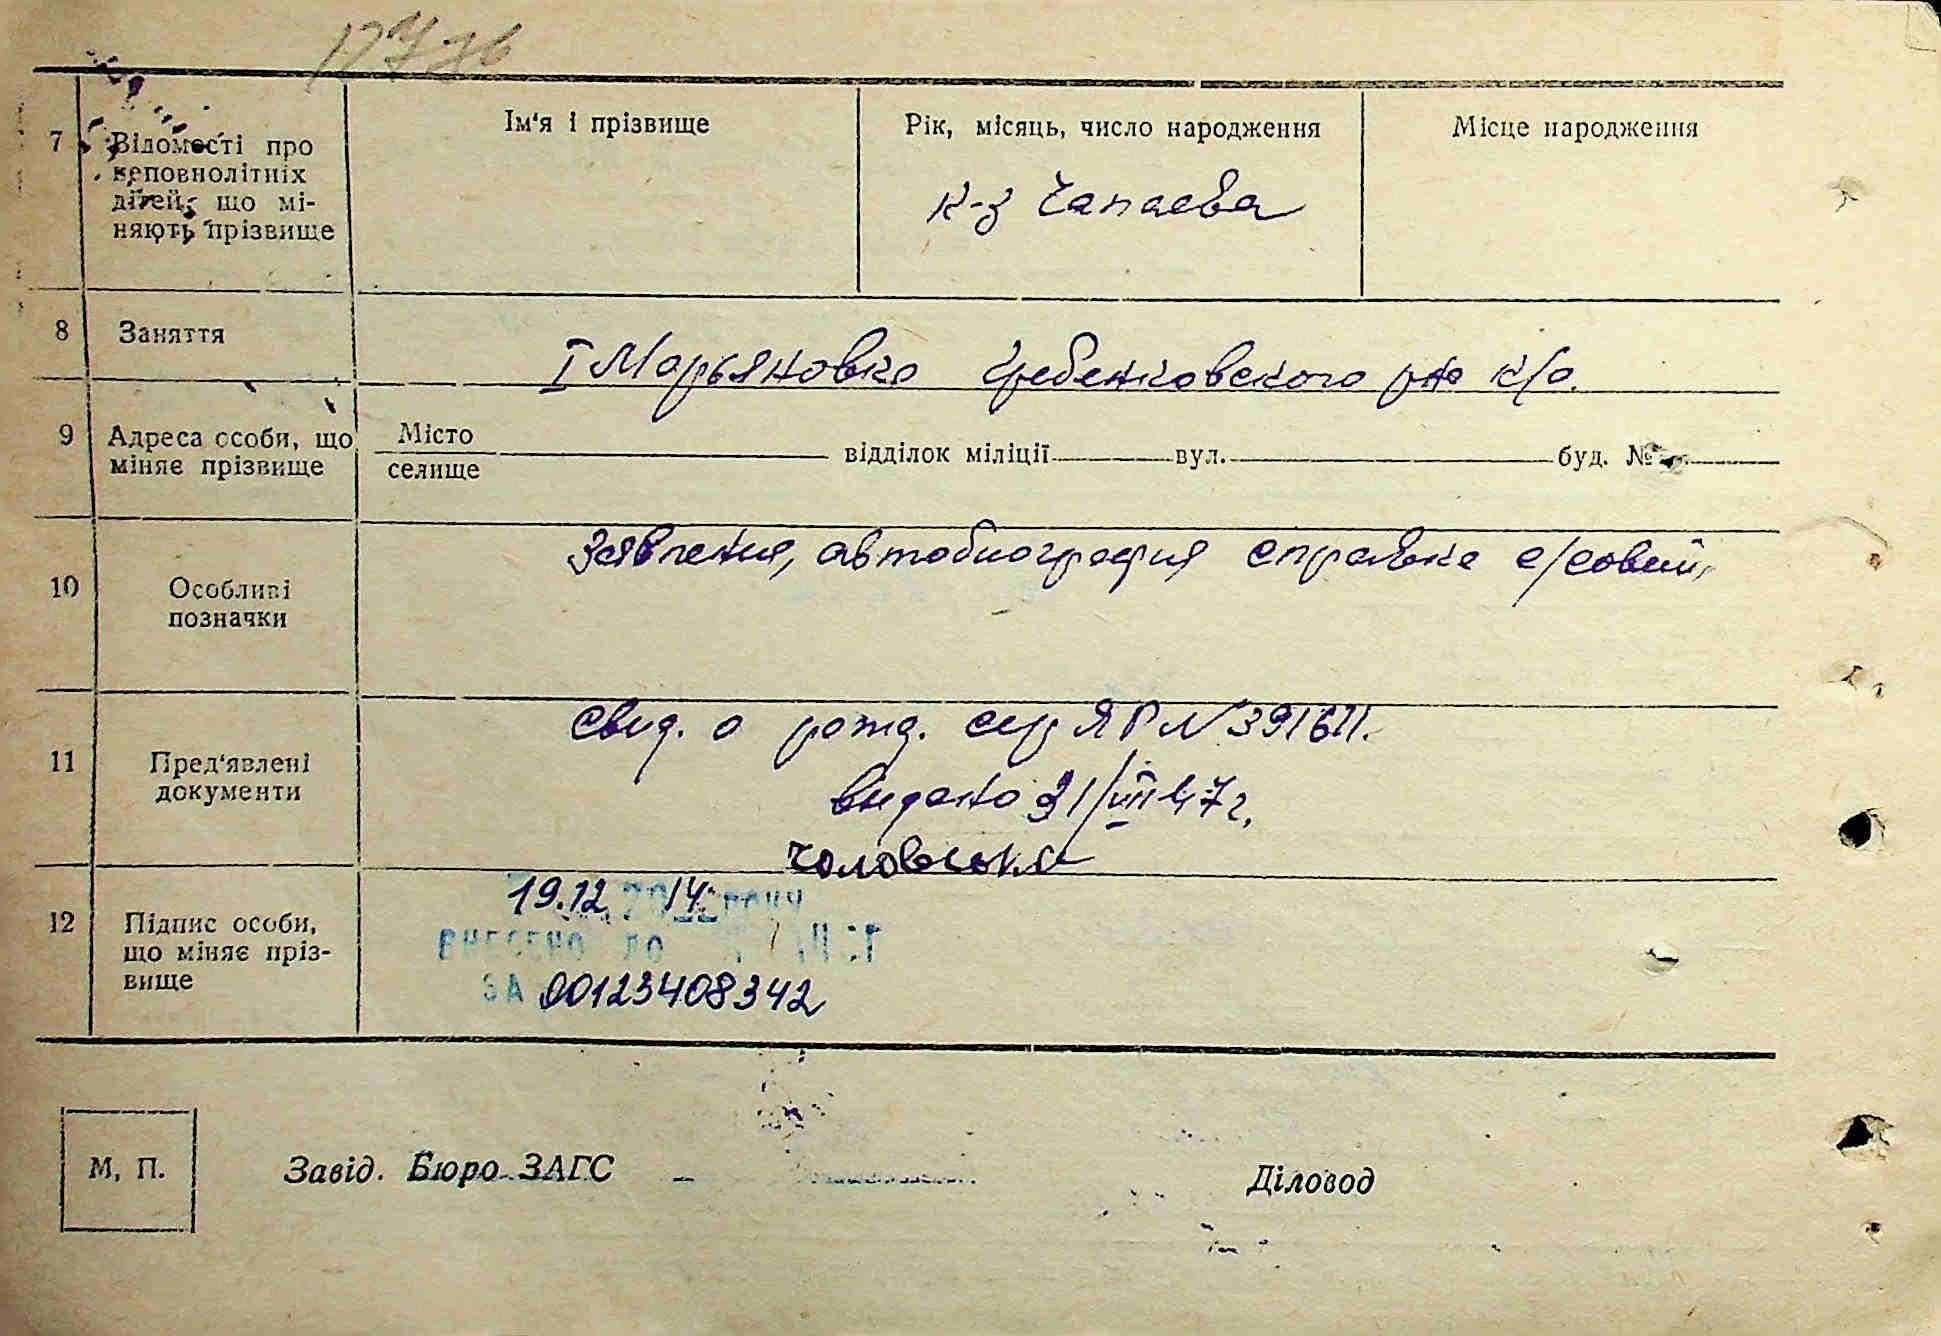 7
Відомості про
неповнолітніх
дітей, що мі-
няють прізвище
Ім'я і прізвище
Рік, місяць, число народження
Місце народження
к-з Чапаева
8
Заняття
I Марьяновка Гребенковского р-на к/о.
9
Адреса особи, що
міняє прізвище
Місто
селище
відділок міліції
вул.
буд. №
10
Особливі
позначки
Заявления, автобиография справка с/совет,
11
Пред'явлені
документи
Свид. о рожд. сер ЯР N 391611.
видано 31/VIII 47г.
12
Підпис особи,
що міняє пріз-
вище
19.12. 2014 року
ВНЕСЕНО ДО
ЗА 00123408342
М, П.
Завід. Бюро ЗАГС
Діловод